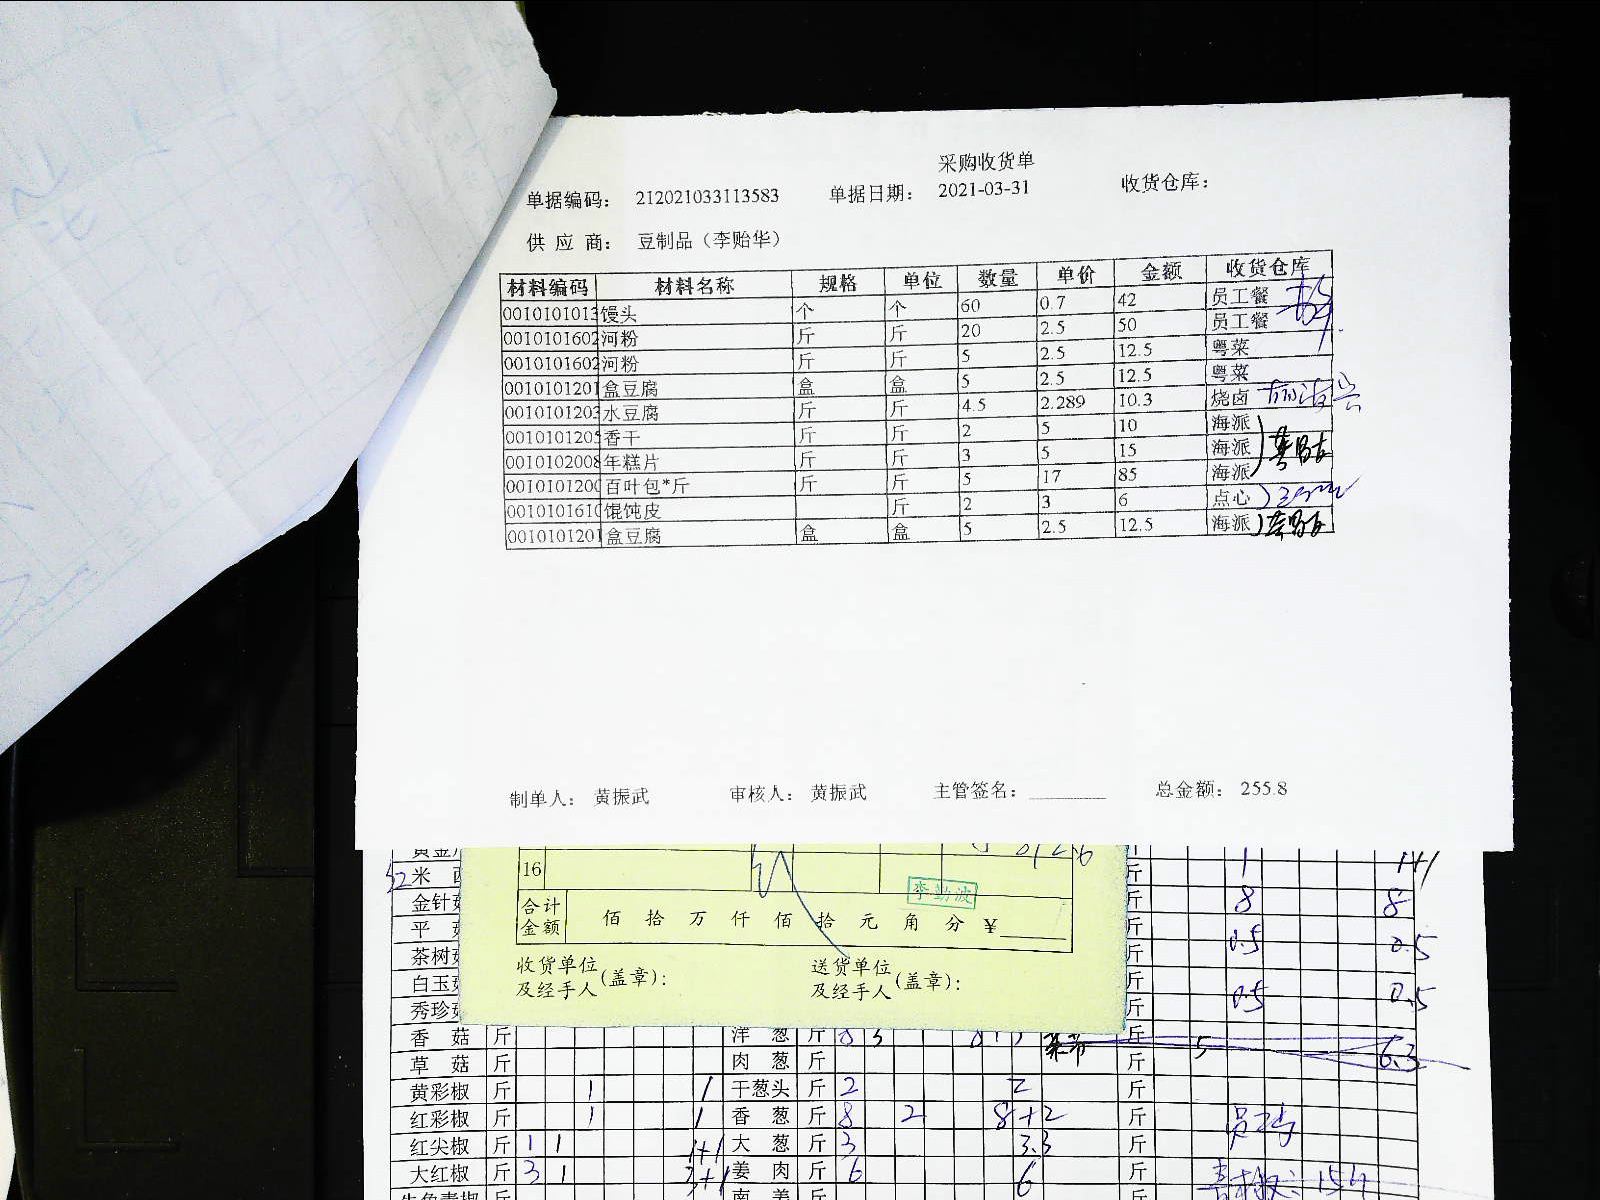 采购收货单
单据编码: 212021033113583 单据日期: 2021-03-31 收货仓库:
供应商: 豆制品（李贻华）
材料编码 材料名称 规格 单位 数量 单价 金额 收货仓库
0010101013 馒头 个 个 60 0.7 42 员工餐
0010101602 河粉 斤 斤 20 2.5 50 员工餐
0010101602 河粉 斤 斤 5 2.5 12.5 粤菜
0010101201 盒豆腐 盒 盒 5 2.5 12.5 粤菜
0010101203 水豆腐 斤 斤 4.5 2.289 10.3 烧卤
0010101205 香干 斤 斤 2 5 10 海派
0010102008 年糕片 斤 斤 3 5 15 海派
0010101200 百叶包*斤 斤 斤 5 17 85 海派
0010101610 馄饨皮 斤 2 3 6 点心
0010101201 盒豆腐 盒 盒 5 2.5 12.5 海派
制单人: 黄振武 审核人: 黄振武 主管签名: 总金额: 255.8
16
李勤波
合计金额 佰 拾 万 仟 佰 拾 元 角 分 ¥
收货单位及经手人(盖章): 送货单位及经手人(盖章):
米 斤 1 1+1
金针菇 斤 8 8
平 斤 0.5 0.5
茶树菇 斤
白玉菇 斤 0.5 0.5
秀珍菇 斤
香菇 斤 洋葱 斤 8 3 斤 5 6.3
草菇 斤 肉葱 斤 斤
黄彩椒 斤 1 1 干葱头 斤 2 2 斤
红彩椒 斤 1 1 香葱 斤 8 2 8+2 斤
红尖椒 斤 1 1 1+1 大葱 斤 3 3.3 斤
大红椒 斤 3 1 3+1 姜肉 斤 6 6 斤
南姜 斤